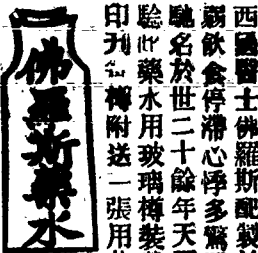 西國醫士佛羅斯配製
弱飲食停滯心悸多驚
馳名於世二十餘年天
騐此藥水用玻璃樽裝
印刋樽附送一張用
佛羅斯藥水